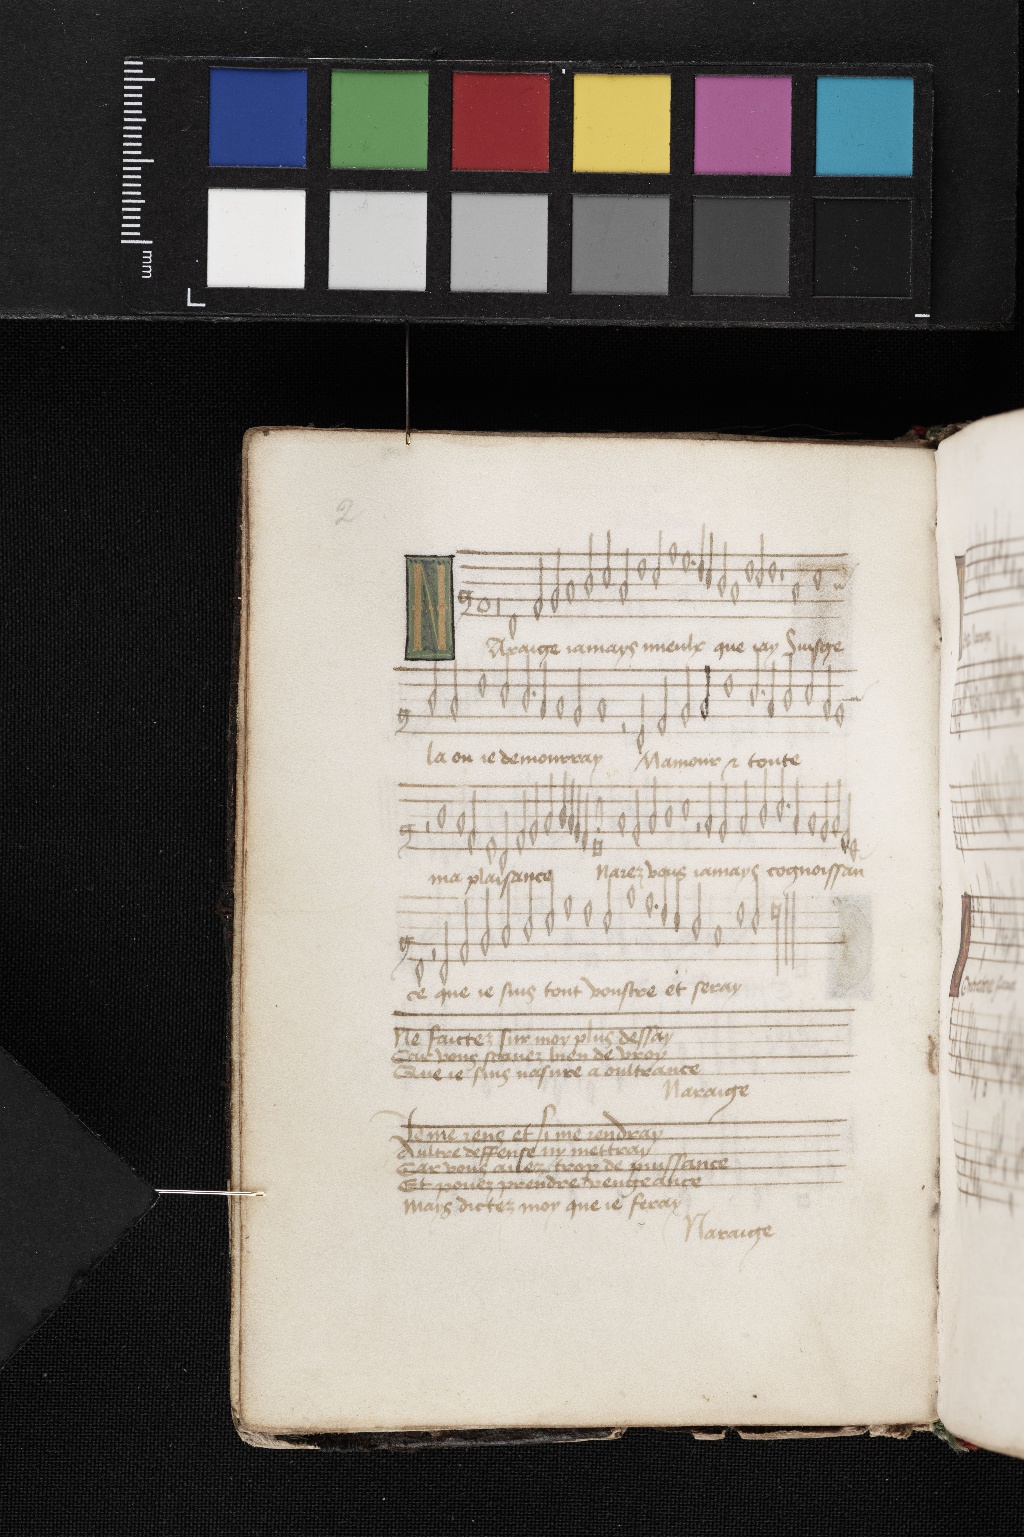 mm
2
NAraige iamays mieulx que iay Suisge
la ou ie demourray Mamour & toute
ma plaisance Narez vous iamays cognoissan
ce que ie suis tout voustre et seray
Ne faictez sur moy plus dessay
Car vous scauez bien de vray
Que ie suis nasure a oultrance
Naraige
Je me rens et si me rendray
Aultre deffense ny mettray
Car vous auez trop de puissance
Et pouez prendre vengeance
Mays dictez moy que ie feray
Naraige